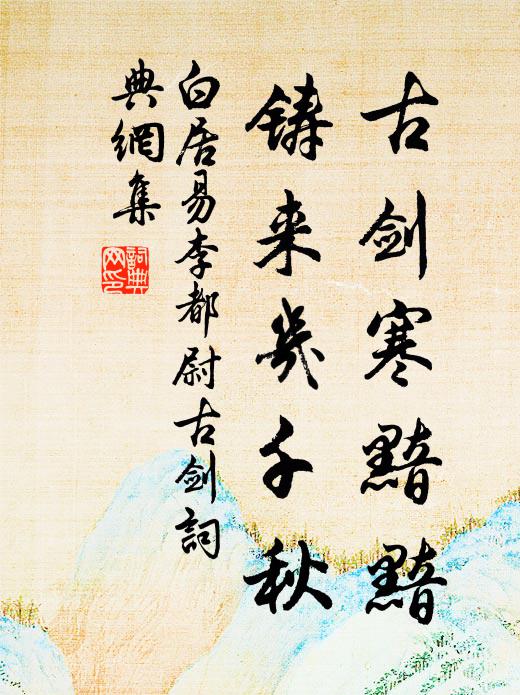 古剑寒黯黯
铸来幾千秋
白居易李都尉古剑詞
典網集
詞典
网印